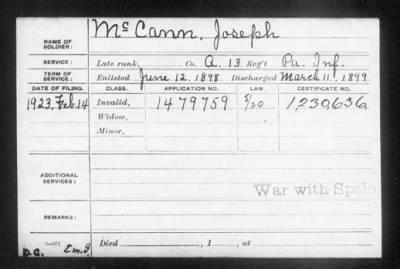 McCann, Joseph
NAME OF SOLDIER:
SERVICE: Late rank, Co. A, 13 Reg't Pa. Inf.
TERM OF SERVICE: Enlisted June 12, 1898 Discharged March 11, 1899
DATE OF FILING. CLASS. APPLICATION NO. LAW. CERTIFICATE NO.
1923, Feb. 14 Invalid, 1479759 5/20 1,230,636
Widow,
Minor,
ADDITIONAL SERVICES:
War with Spain
REMARKS:
Died , 1 , at